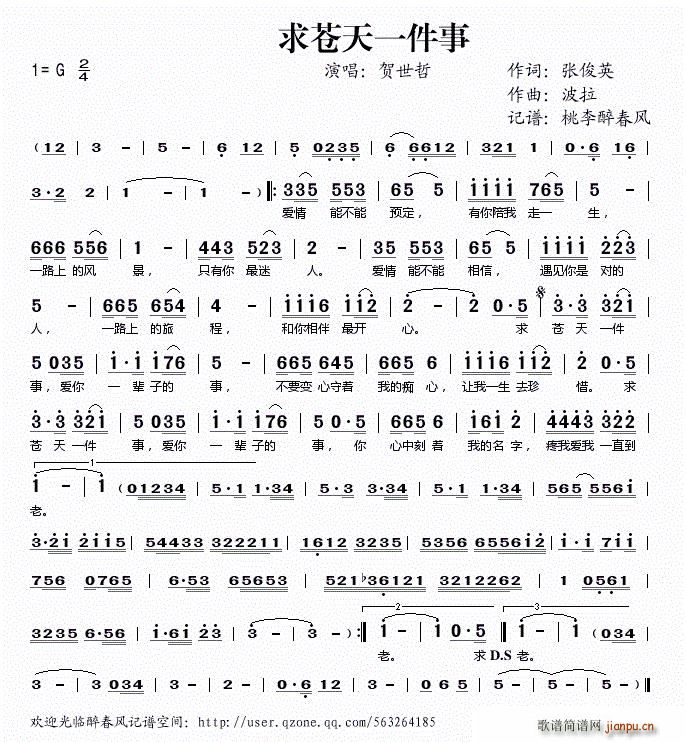 求苍天一件事
1= G 2/4 演唱：贺世哲 作词：张俊英
作曲：波拉
记谱：桃李醉春风
(12 | 3 - | 5 - | 6 12 | 5 0235 | 6 6612 | 321 1 | 0·6 16 |
3·2 2 | 1 - | 1 - ) |: 335 553 | 65 5 | 1111 765 | 5 - |
爱情 能不能 预定， 有你陪我 走一 生，
666 556 | 1 - | 443 523 | 2 - | 335 553 | 65 5 | 1111 223 |
一路上 的风 景， 只有你 最迷 人。 爱情 能不能 相信， 遇见你是 对的
5 - | 665 654 | 4 - | 1111 112 | 2 - | 2 0·5 | 3·3 323 |
人， 一路上 的旅 程， 和你相伴 最开 心。 求 苍 天 一件
5 035 | 1·1 176 | 5 - | 6665 345 | 665 5 | 1116 112 | 2 0·5 |
事，爱你 一 辈子的 事， 不要变 心守着 我的痴 心，让我一生 去珍 惜。求
3·3 321 | 5 035 | 1·1 176 | 5 0·5 | 6665 3 | 161 2 | 4443 322 |
苍 天 一件 事，爱你 一 辈子的 事，你 心中刻 着 我的名 字，疼我爱我 一直到
1
1 - | 1 (01234 | 5·3 01234 | 5·3 34 | 5·5 1·34 | 565 5561 |
老。
3·21 2115 | 54433 322211 | 1612 3235 | 5356 6555612 | 1·1 711 |
756 0765 | 6·53 65653 | 521♭36121 3212262 | 1 0561 |
2 3
3235 6·56 | 1·61 23 | 3 - | 3 - ) :| 1 - | 1 0·5 | 1 - | 1 (034 |
老。 求 D.S 老。
3 - | 3 034 | 5 - | 5 - | 6 12 | 5 0235 | 2·3 21 | 1 - | 1 - )|
欢迎光临醉春风记谱空间：http://user.qzone.qq.com/563264185
歌谱简谱网
jianpu.cn